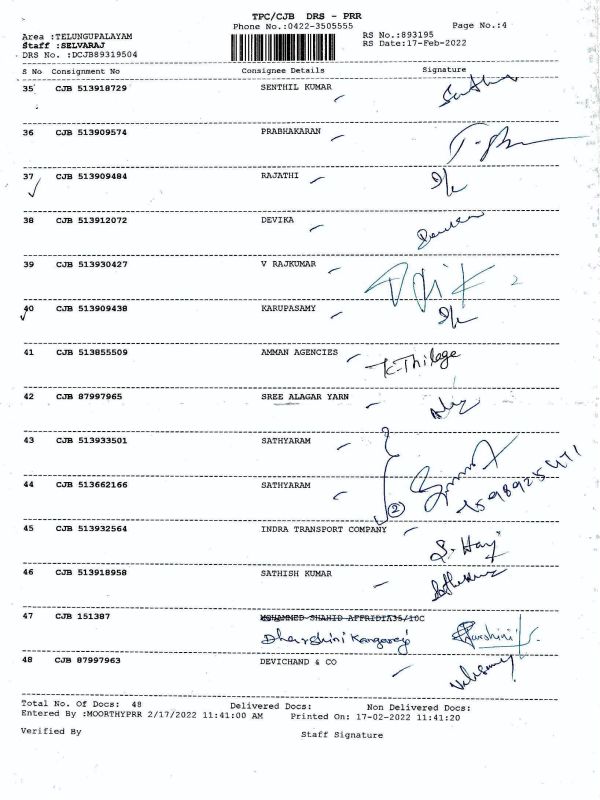 TPC/CJB DRS - PRR
Phone No.:0422-3505555 Page No.:4
Area :TELUNGUPALAYAM RS No.:893195
Staff :SELVARAJ RS Date:17-Feb-2022
DRS No. :DCJB89319504
S No Consignment No Consignee Details Signature
35 CJB 513918729 SENTHIL KUMAR
36 CJB 513909574 PRABHAKARAN
37 CJB 513909484 RAJATHI
38 CJB 513912072 DEVIKA
39 CJB 513930427 V RAJKUMAR
40 CJB 513909438 KARUPASAMY
41 CJB 513855509 AMMAN AGENCIES K.Thilage
42 CJB 87997965 SREE ALAGAR YARN
43 CJB 513933501 SATHYARAM
44 CJB 513662166 SATHYARAM 2
45 CJB 513932564 INDRA TRANSPORT COMPANY
46 CJB 513918958 SATHISH KUMAR
47 CJB 151387 MOHAMMED SHAHID AFFRIDIA35/10C
Dharshini Kangaraj
48 CJB 87997963 DEVICHAND & CO
Total No. Of Docs: 48 Delivered Docs: Non Delivered Docs:
Entered By :MOORTHYPRR 2/17/2022 11:41:00 AM Printed On: 17-02-2022 11:41:20
Verified By Staff Signature